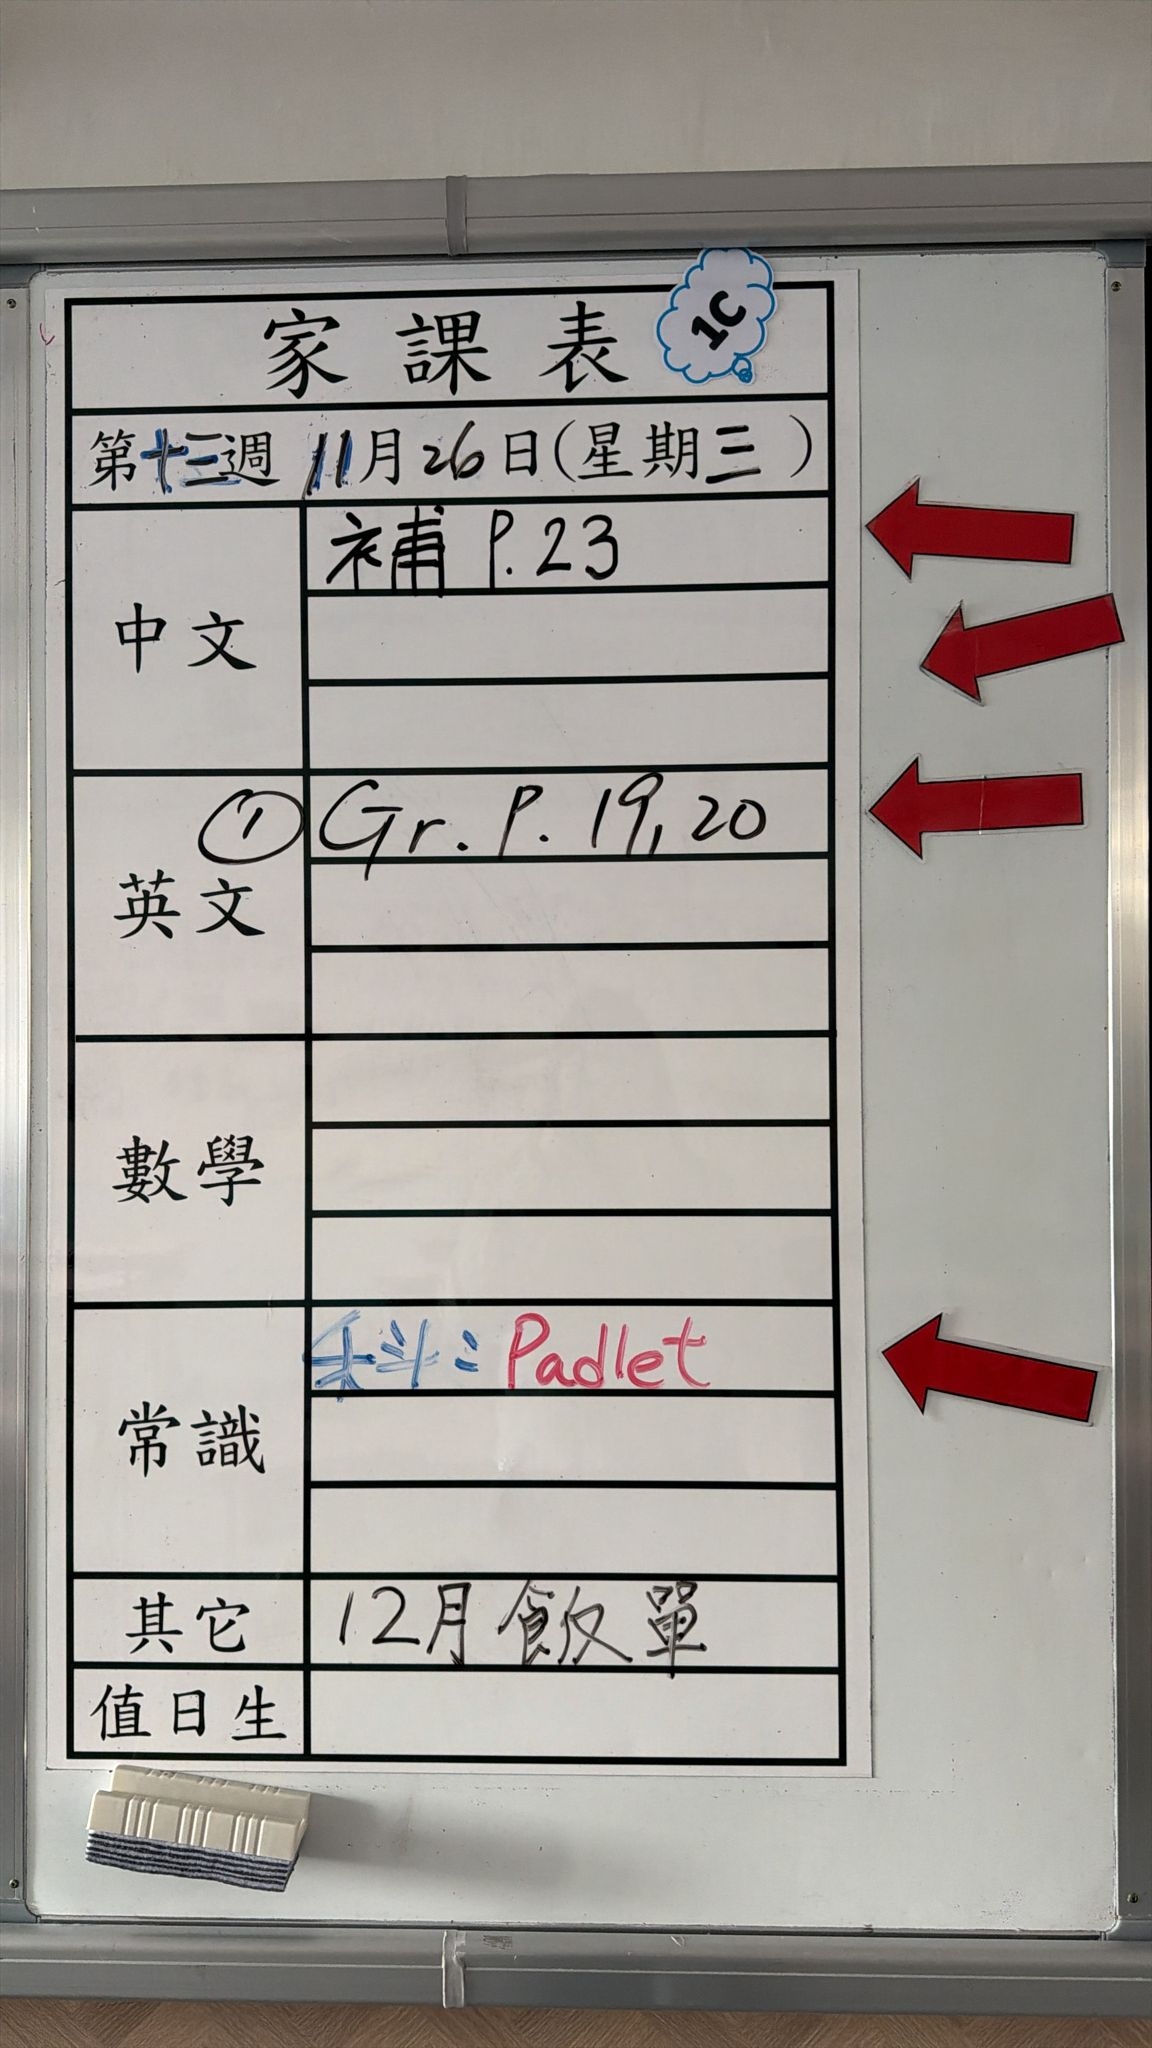 家課表 1C
第十三週 11月26日(星期三)
中文
補 P.23
英文
① Gr. P. 19, 20
數學
常識
科: Padlet
其它
12月飯單
值日生